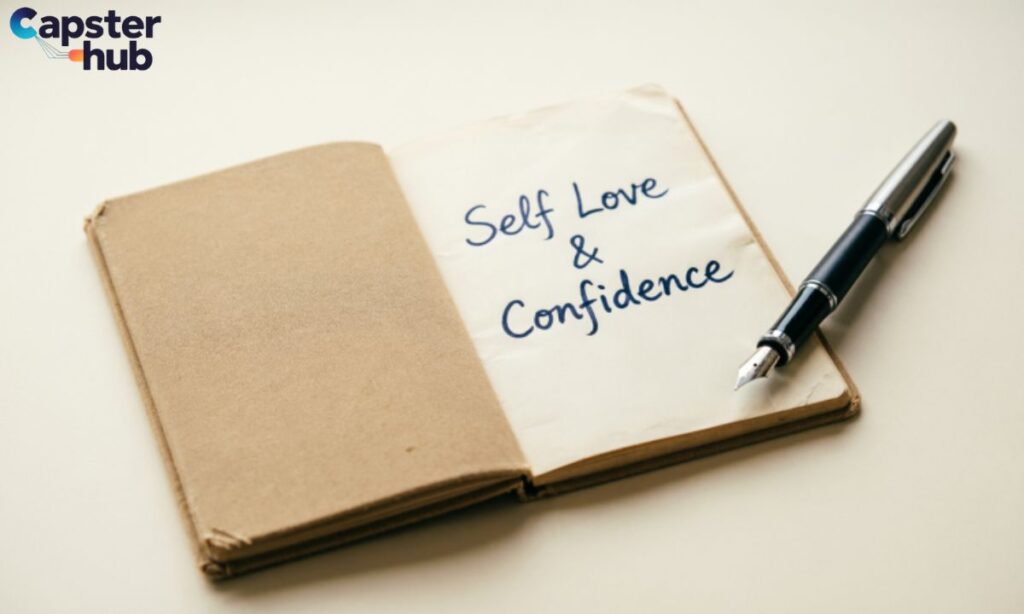 Capster
hub
Self Love
&
Confidence